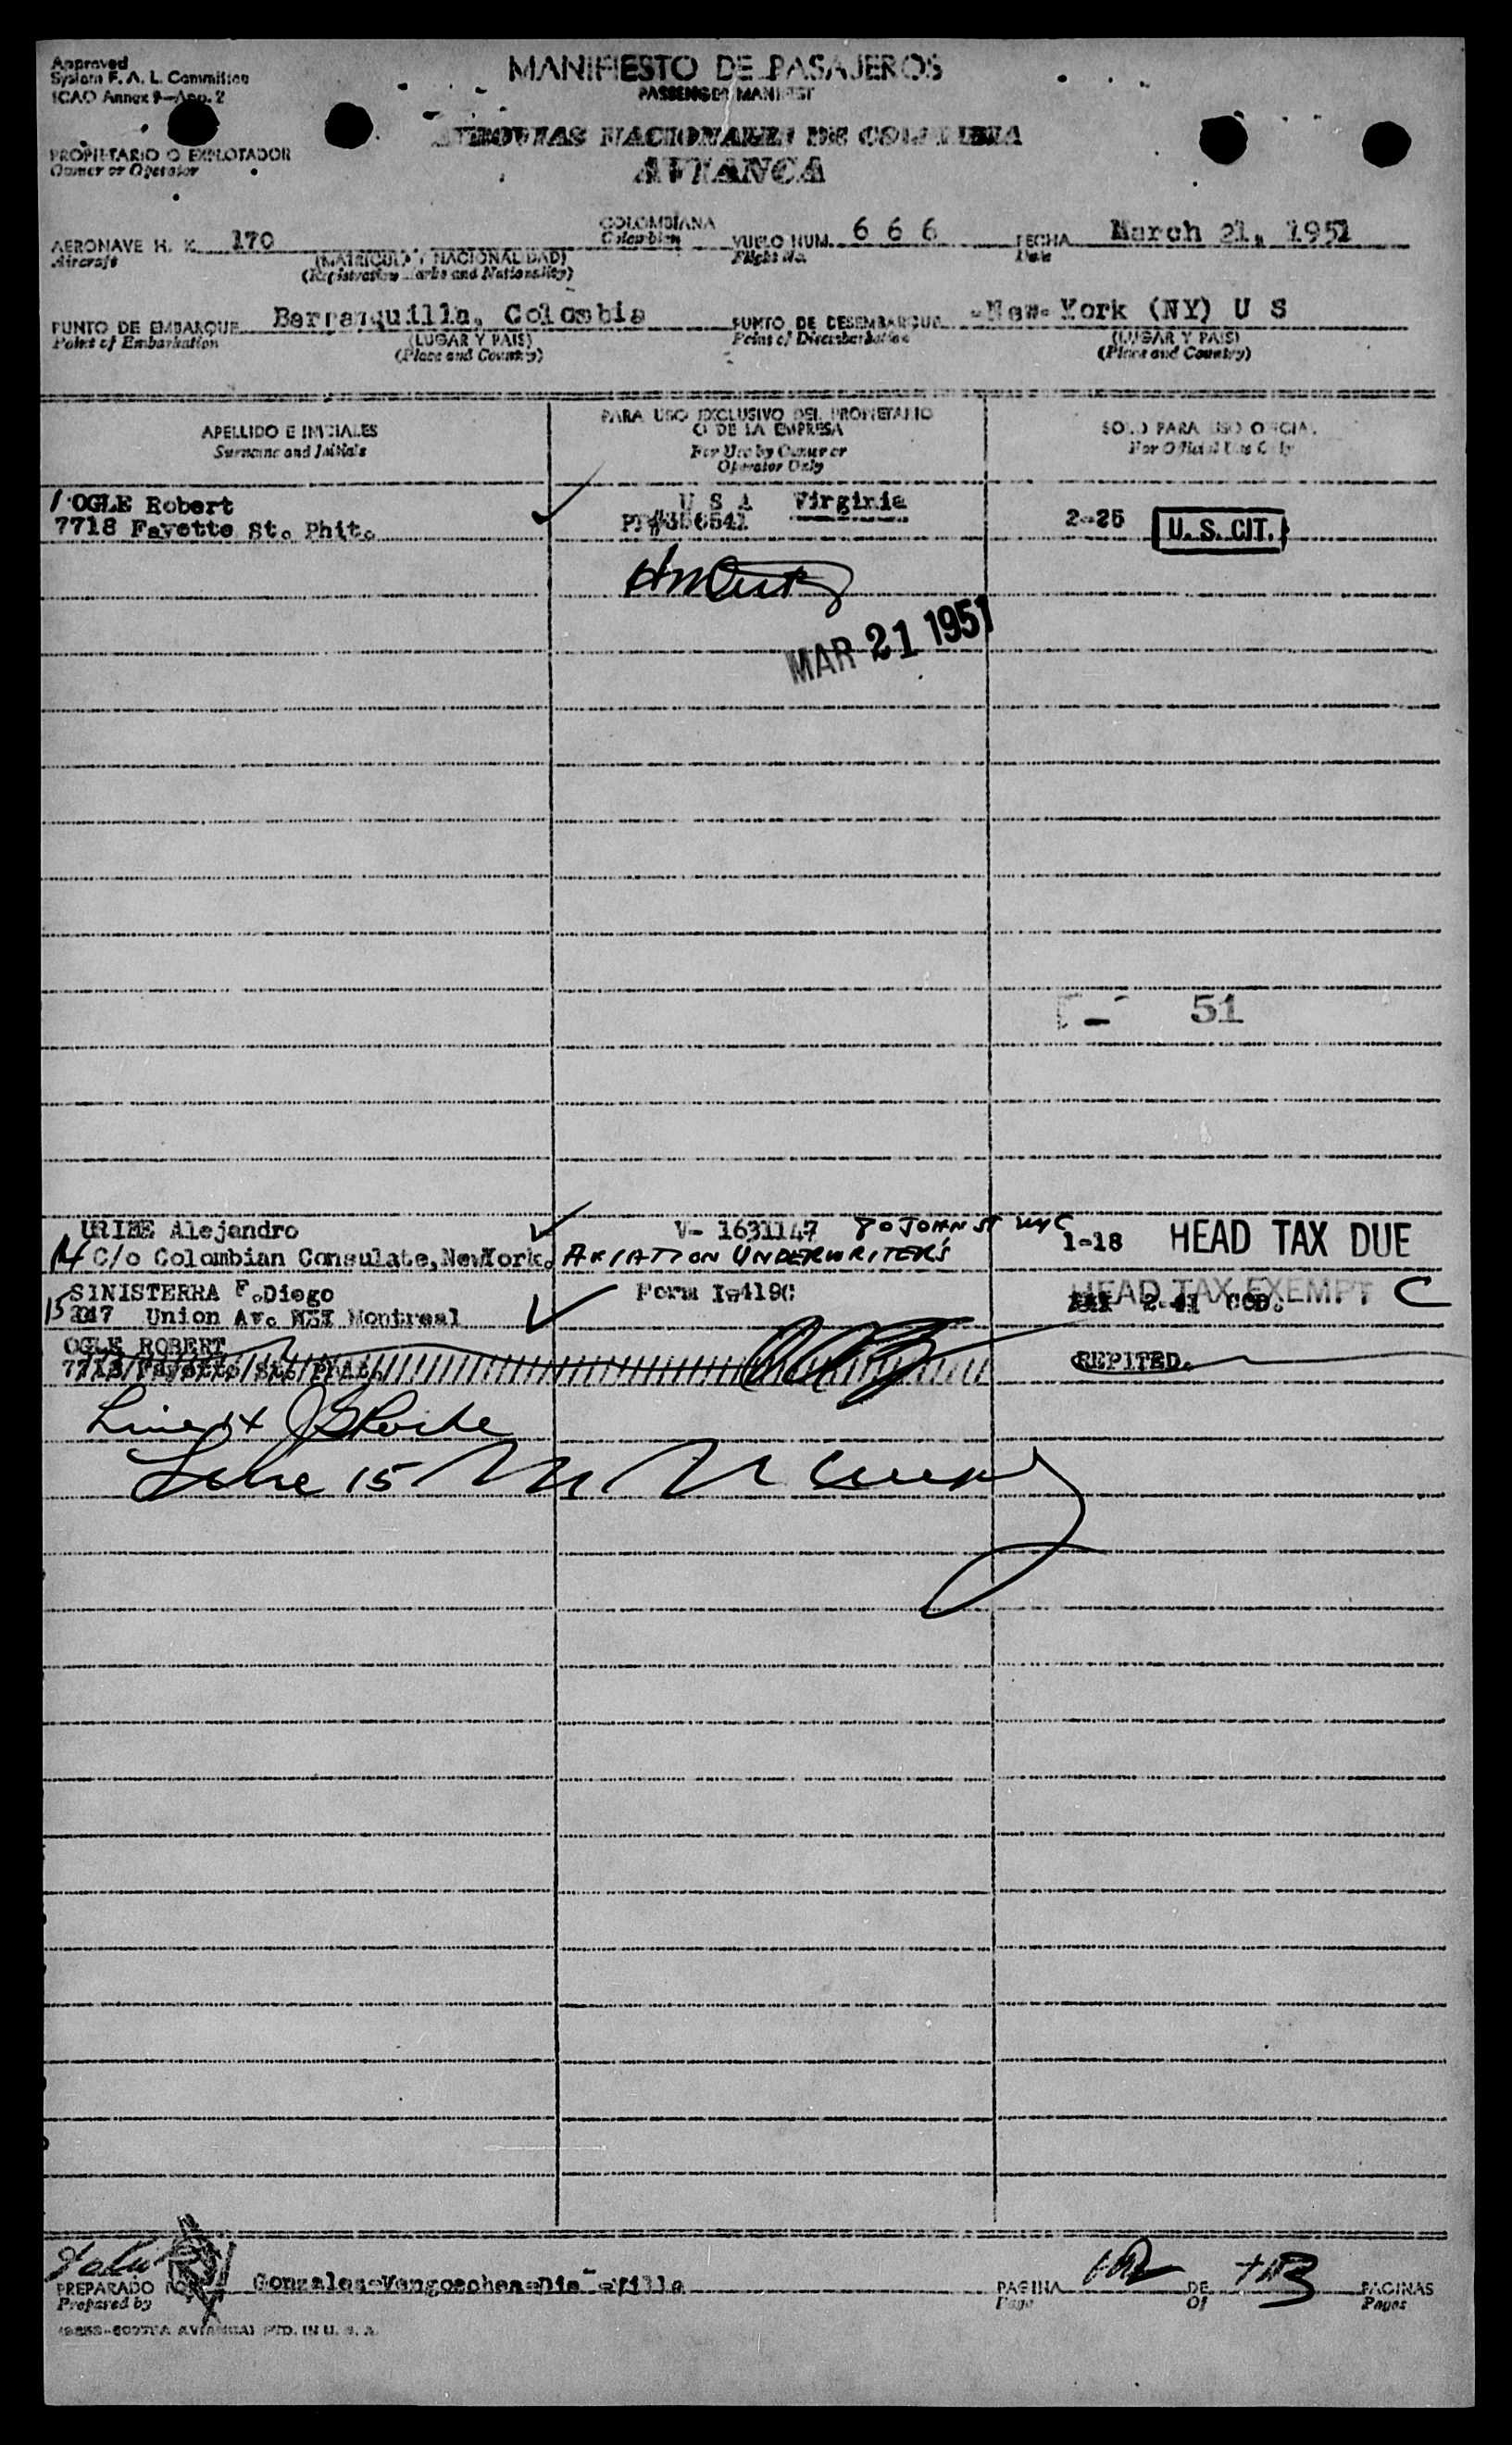 Approved
System F. A. L. Committee
ICAO Annex 9—App. 2
MANIFIESTO DE PASAJEROS
PASSENGER MANIFEST
AEROVIAS NACIONALES DE COLOMBIA
AVIANCA
PROPIETARIO O EXPLOTADOR
Owner or Operator
AERONAVE H. K. 170 COLOMBIANA VUELO NUM. 6 6 6 FECHA March 21, 1951
Aircraft (MATRICULA Y NACIONALIDAD) Colombian Flight No. Date
(Registration Marks and Nationality)
PUNTO DE EMBARQUE Barranquilla, Colombia PUNTO DE DESEMBARQUE New York (NY) U S
Point of Embarkation (LUGAR Y PAIS) Point of Disembarkation (LUGAR Y PAIS)
(Place and Country) (Place and Country)
APELLIDO E INICIALES PARA USO EXCLUSIVO DEL PROPIETARIO O DE LA EMPRESA SOLO PARA USO OFICIAL
Surname and Initials For Use by Owner or Operator Only For Official Use Only
1 OGLE Robert U S A Virginia
7718 Fayette St. Phit. 2-25 U. S. CIT.
MAR 21 1951
51
URIBE Alejandro V- 1631147 80 JOHN ST NYC
14 C/o Colombian Consulate, NewYork. AVIATION UNDERWRITERS 1-18 HEAD TAX DUE
SINISTERRA F. Diego Form I-419C HEAD TAX EXEMPT C
15 Union Av. Montreal
OGLE ROBERT
7718 Fayette St. Phit. REPITED.
Line 14
Line 15
PREPARADO POR PAGINA DE PAGINAS
Prepared by Page Of Pages